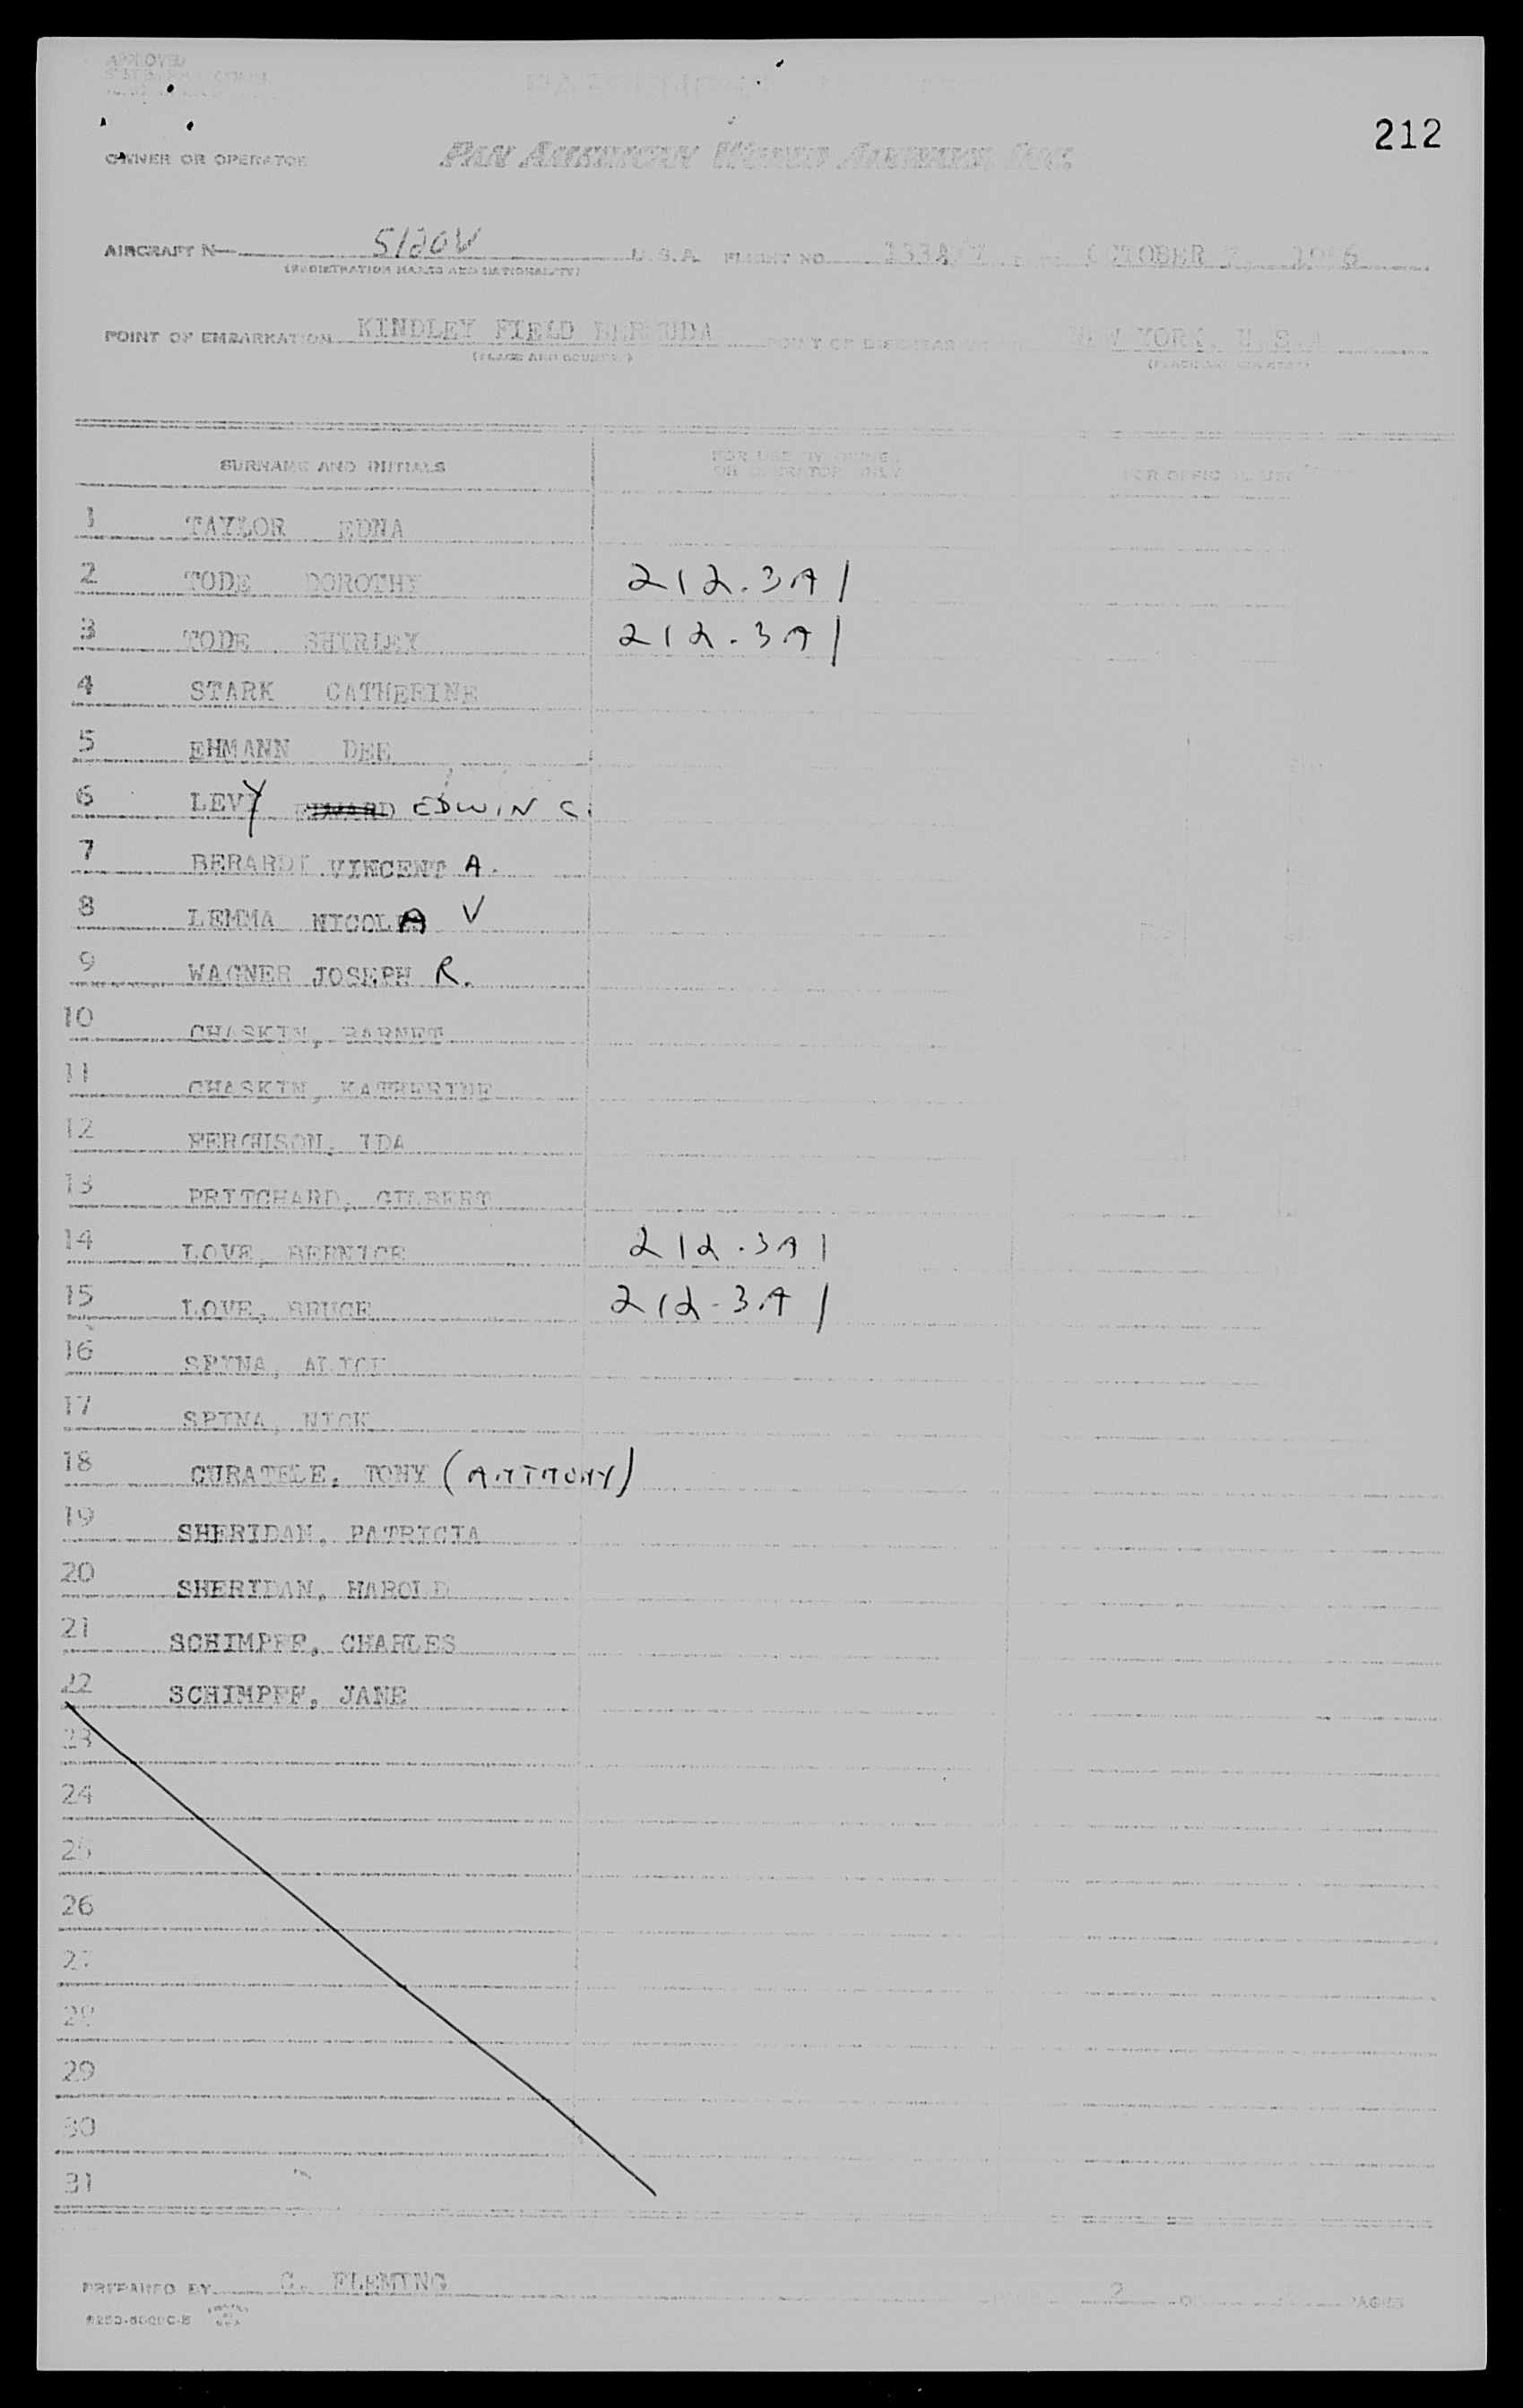 APPROVED
212
OWNER OR OPERATOR PAN AMERICAN WORLD AIRWAYS, INC.
AIRCRAFT N 5120V U.S.A. FLIGHT NO. 133A/7 OCTOBER
(REGISTRATION MARKS AND NATIONALITY)
POINT OF EMBARKATION KINDLEY FIELD BERMUDA POINT OF NEW YORK, U.S.A
(PLACE AND COUNTRY) (PLACE AND COUNTRY)
SURNAME AND INITIALS FOR USE BY OWNER OR OPERATOR ONLY FOR OFFICIAL USE
1 TAYLOR EDNA
2 TODE DOROTHY 212.3A1
3 TODE SHIRLEY 212.3A1
4 STARK CATHERINE
5 EHMANN DEE
6 LEVY EDWARD EDWIN C.
7 BERARDI VINCENT A.
8 LEMMA NICOLA V
9 WAGNER JOSEPH R.
10 CHASKIN, BARNET
11 CHASKIN, KATHERINE
12 FERGUISON, IDA
13 PRITCHARD, GILBERT
14 LOVE, BERNICE 212.3A1
15 LOVE, BRUCE 212-3A1
16 SPINA, ALICE
17 SPINA, NICK
18 CURATELE, TONY (ANTHONY)
19 SHERIDAN, PATRICIA
20 SHERIDAN, HAROLD
21 SCHIMPFF, CHARLES
22 SCHIMPFF, JANE
23
24
25
26
27
28
29
30
31
PREPARED BY C. FLEMING 2 PAGES